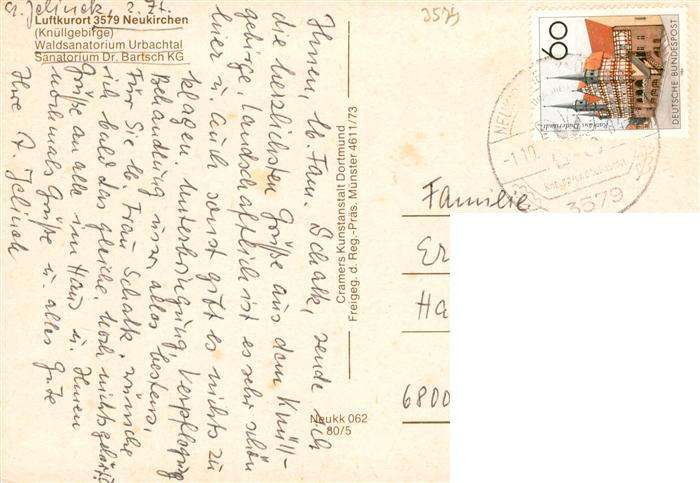 A. Jelinek, z. Zt.
Luftkurort 3579 Neukirchen
(Knüllgebirge)
Waldsanatorium Urbachtal
Sanatorium Dr. Bartsch KG
Ihnen, lb. Fam. Schalk, sende ich
die herzlichsten Grüße aus dem Knüll-
gebirge. Landschaftlich ist es sehr schön
hier u. auch sonst gibt es nichts zu
klagen. Unterbringung, Verpflegung
Behandlung usw. alles bestens.
Für Sie lb. Frau Schalk, wünsche
ich bald das gleiche. Noch nichts gehört?
Grüße an alle im Haus u. Ihnen
nochmals Grüße u. alles Gute
Ihre A. Jelinek
Cramers Kunstanstalt Dortmund
Freigeg. d. Reg.-Präs. Münster 4611/73
Neukk 062
80/5
3579
60
DEUTSCHE BUNDESPOST
Rathaus Duderstadt
3579
Familie
Er
Ha
6800